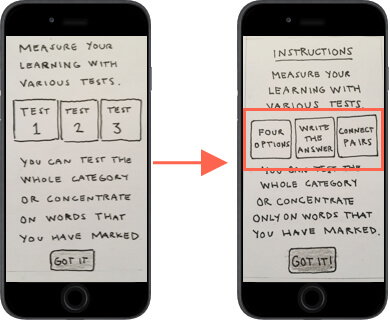 MEASURE YOUR
LEARNING WITH
VARIOUS TESTS.
TEST 1
TEST 2
TEST 3
YOU CAN TEST THE
WHOLE CATEGORY
OR CONCENTRATE
ON WORDS THAT
YOU HAVE MARKED
GOT IT
INSTRUCTIONS
MEASURE YOUR
LEARNING WITH
VARIOUS TESTS.
FOUR OPTIONS
WRITE THE ANSWER
CONNECT PAIRS
YOU CAN TEST THE
WHOLE CATEGORY
OR CONCENTRATE
ONLY ON WORDS THAT
YOU HAVE MARKED.
GOT IT!